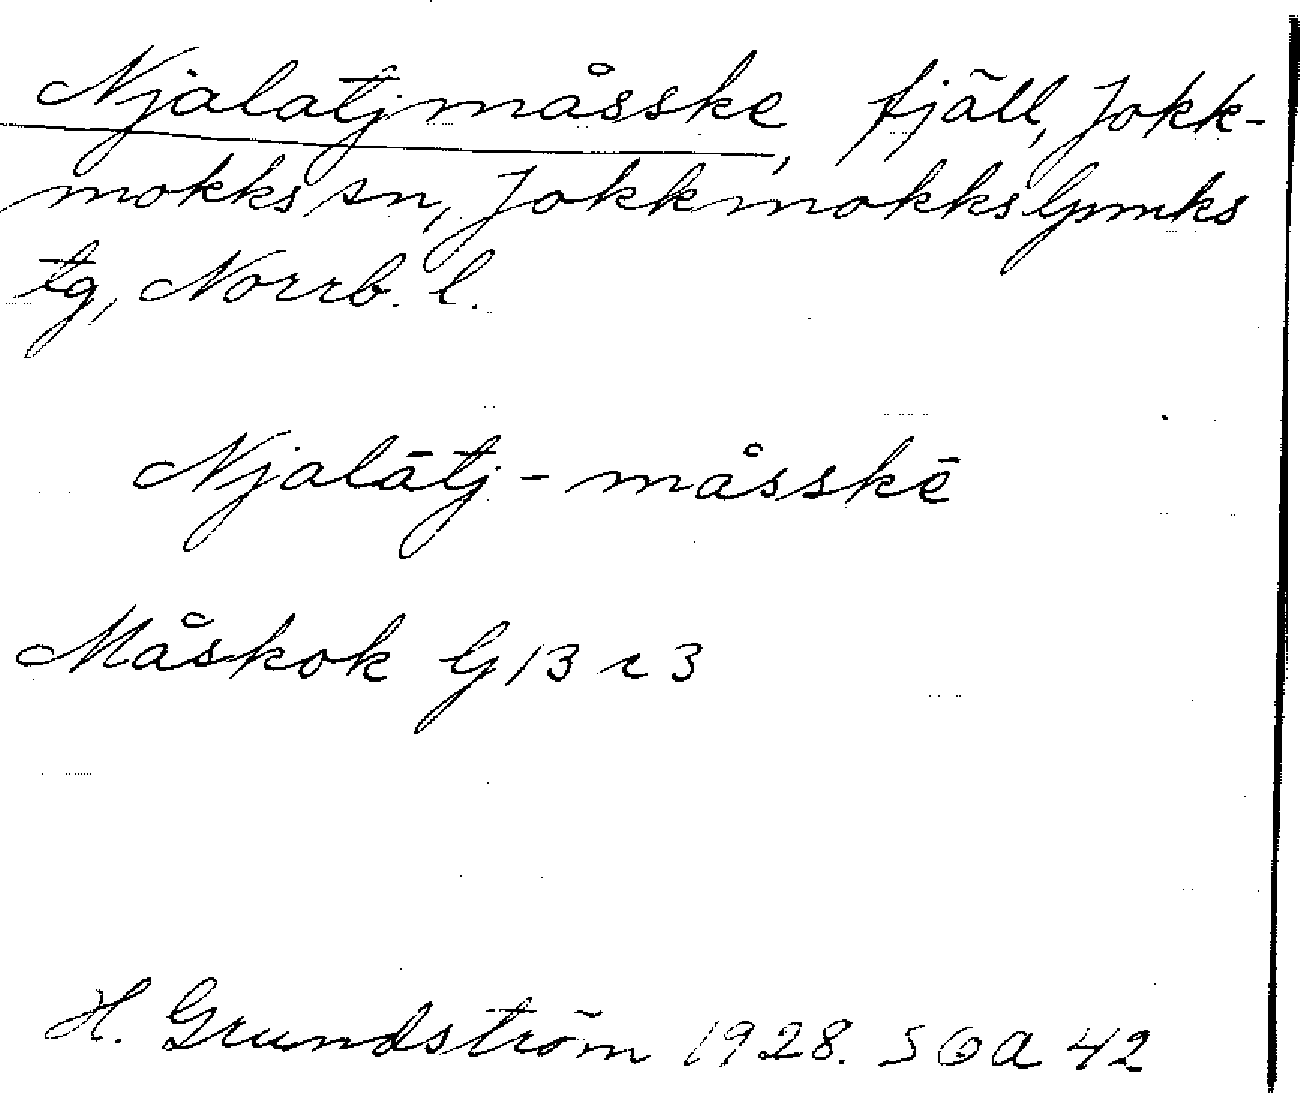 Njalatjmåsske, fjäll, Jokk-
mokks sn, Jokkmokks lpmks
tg, Norrb. l.
Njalātj - måsskē
Måskok G 13 r 3
H. Grundström 1928. SOA 42